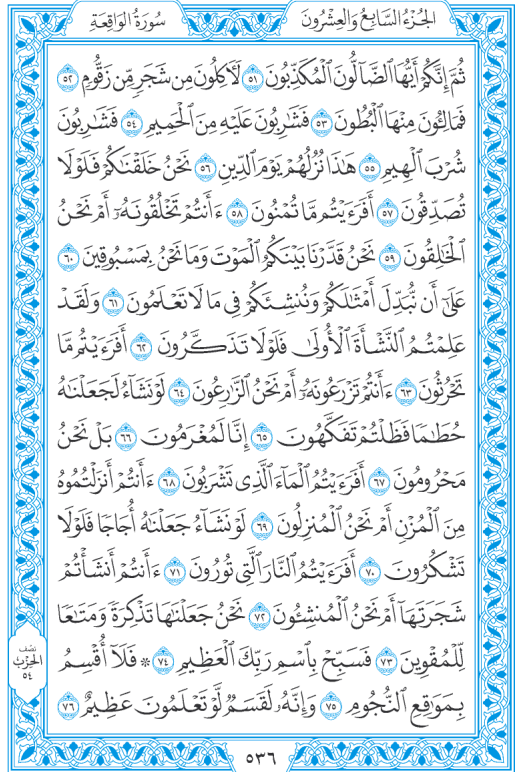 الجُزْءُ السَّابِعُ وَالعِشْرُونَ
سُورَةُ الوَاقِعَةِ
ثُمَّ إِنَّكُمْ أَيُّهَا الضَّالُّونَ الْمُكَذِّبُونَ ٥١ لَآكِلُونَ مِن شَجَرٍ مِّن زَقُّومٍ ٥٢
فَمَالِئُونَ مِنْهَا الْبُطُونَ ٥٣ فَشَارِبُونَ عَلَيْهِ مِنَ الْحَمِيمِ ٥٤ فَشَارِبُونَ
شُرْبَ الْهِيمِ ٥٥ هَٰذَا نُزُلُهُمْ يَوْمَ الدِّينِ ٥٦ نَحْنُ خَلَقْنَاكُمْ فَلَوْلَا
تُصَدِّقُونَ ٥٧ أَفَرَءَيْتُم مَّا تُمْنُونَ ٥٨ ءَأَنتُمْ تَخْلُقُونَهُۥٓ أَمْ نَحْنُ
الْخَالِقُونَ ٥٩ نَحْنُ قَدَّرْنَا بَيْنَكُمُ الْمَوْتَ وَمَا نَحْنُ بِمَسْبُوقِينَ ٦٠
عَلَىٰٓ أَن نُّبَدِّلَ أَمْثَالَكُمْ وَنُنشِئَكُمْ فِي مَا لَا تَعْلَمُونَ ٦١ وَلَقَدْ
عَلِمْتُمُ النَّشْأَةَ الْأُولَىٰ فَلَوْلَا تَذَكَّرُونَ ٦٢ أَفَرَءَيْتُم مَّا
تَحْرُثُونَ ٦٣ ءَأَنتُمْ تَزْرَعُونَهُۥٓ أَمْ نَحْنُ الزَّارِعُونَ ٦٤ لَوْ نَشَآءُ لَجَعَلْنَاهُ
حُطَامًا فَظَلْتُمْ تَفَكَّهُونَ ٦٥ إِنَّا لَمُغْرَمُونَ ٦٦ بَلْ نَحْنُ
مَحْرُومُونَ ٦٧ أَفَرَءَيْتُمُ الْمَآءَ الَّذِي تَشْرَبُونَ ٦٨ ءَأَنتُمْ أَنزَلْتُمُوهُ
مِنَ الْمُزْنِ أَمْ نَحْنُ الْمُنزِلُونَ ٦٩ لَوْ نَشَآءُ جَعَلْنَاهُ أُجَاجًا فَلَوْلَا
تَشْكُرُونَ ٧٠ أَفَرَءَيْتُمُ النَّارَ الَّتِي تُورُونَ ٧١ ءَأَنتُمْ أَنشَأْتُمْ
شَجَرَتَهَآ أَمْ نَحْنُ الْمُنشِئُونَ ٧٢ نَحْنُ جَعَلْنَاهَا تَذْكِرَةً وَمَتَاعًا
لِّلْمُقْوِينَ ٧٣ فَسَبِّحْ بِاسْمِ رَبِّكَ الْعَظِيمِ ٧٤ ۞ فَلَآ أُقْسِمُ
بِمَوَاقِعِ النُّجُومِ ٧٥ وَإِنَّهُۥ لَقَسَمٌ لَّوْ تَعْلَمُونَ عَظِيمٌ ٧٦
نصف
الحزب
٥٤
٥٣٦